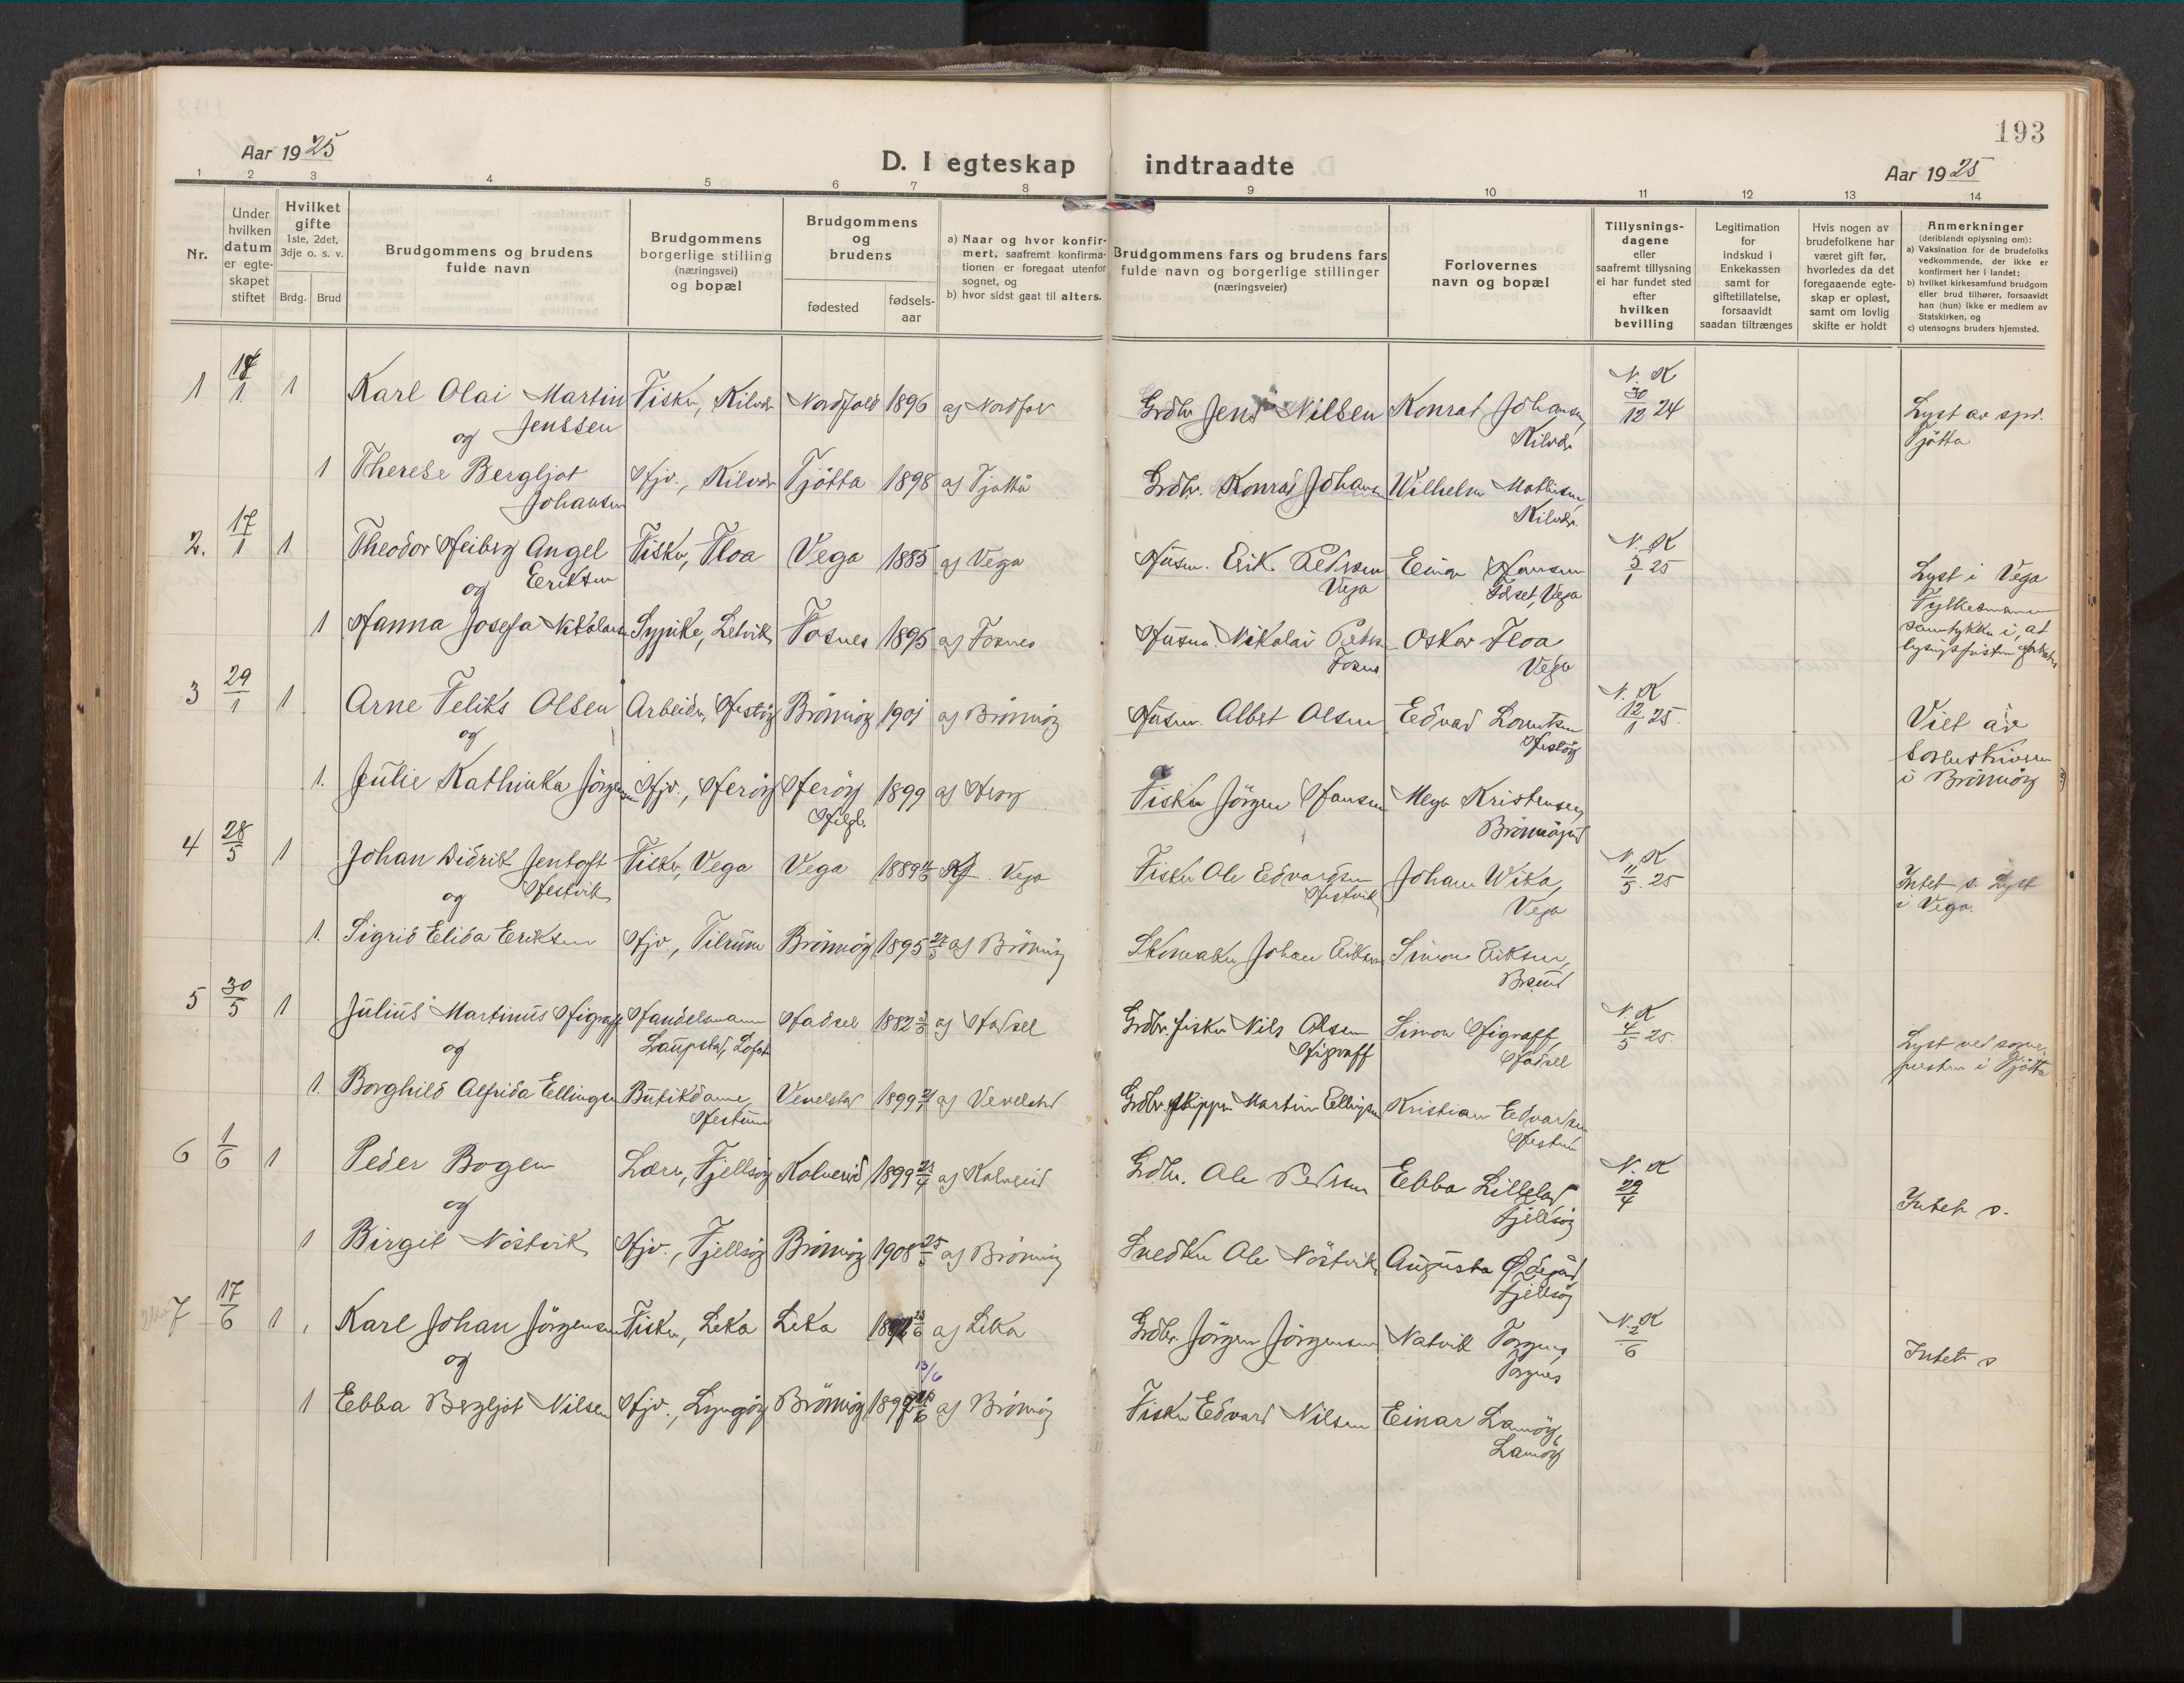 193
Aar 1925
D. I egteskap indtraadte
Aar 1925
1 2 3 4 5 6 7 8 9 10 11 12 13 14
Nr.
Under hvilken datum er egteskapet stiftet
Hvilket gifte 1ste, 2det, 3dje o. s. v.
Brdg. Brud
Brudgommens og brudens fulde navn
Brudgommens borgerlige stilling (næringsvei) og bopæl
Brudgommens og brudens
fødested
fødsels-aar
a) Naar og hvor konfirmert, saafremt konfirmationen er foregaat utenfor sognet, og
b) hvor sidst gaat til alters.
Brudgommens fars og brudens fars fulde navn og borgerlige stillinger (næringsveier)
Forlovernes navn og bopæl
Tillysningsdagene eller saafremt tillysning ei har fundet sted efter hvilken bevilling
Legitimation for indskud i Enkekassen samt for giftetillatelse, forsaavidt saadan tiltrænges
Hvis nogen av brudefolkene har været gift før, hvorledes da det foregaaende egteskap er opløst, samt om lovlig skifte er holdt
Anmerkninger (deriblandt oplysning om):
a) Vaksination for de brudefolks vedkommende, der ikke er konfirmert her i landet;
b) hvilket kirkesamfund brudgom eller brud tilhører, forsaavidt han (hun) ikke er medlem av Statskirken, og
c) utensogns bruders hjemsted.
1 1 Karl Olai Martin Jenssen Fisker, Nordfold 1896 a) Nordfol Grdbr Jens Nilsen Konrad Johansen, N. K 30/12 24 Lyst av spr. Tjøtta
og
1 Therese Bergljot Johansen Hjv., Tjøtta 1898 a) Tjøtta Grdbr. Konrad Johansen Wilhelm Mathisen,
2. 17/1 1 Theodor Heiberg Angel Eriksen Fisker, Floa Vega 1885 a) Vega Husm. Erik Pedersen Vega Einar Hansen Vega N. K 5/1 25 Lyst i Vega
og
1 Hanna Josefa Nikolaisen Sypike, Fosnes 1895 a) Fosnes Husm. Nikolai Oskar Floa Vega
3 29/1 1 Arne Feliks Olsen Arbeider, Brönnöy 1901 a) Brönnöy Husm. Albert Olsen Edvard Lorentsen N. K 12/1 25. Viet av sorenskriveren i Brönnöy
og
1. Julie Kathinka Jörgensen Hjv., Heröy Heröy 1899 a) Heröy Fisker Jörgen Hansen Kristensen, Brönnöysund
4 28/5 1 Johan Didrik Jentoft Hestvik Fisker, Vega Vega 1889 Vega Fisker Ole Edvardsen Hestvik Johan Wika, Vega N. K 11/5 25 Intet s. Lyst i Vega.
og
1. Sigrid Elida Eriksen Hjv., Tilrum Brönnöy 1895 a) Brönnöy Skomaker Johan Eriksen Simon Eriksen,
5 30/5 1 Julius Martinus Higraff Handelsmann Laupstad, Lofot Hadsel 1882 a) Hadsel Grdbr. fisker Nils Olsen Higraff Simon Higraff, Hadsel N. K 4/5 25. Lyst ved sogne presten i Tjøtta
og
1. Borghild Alfrida Ellingsen Butikdame, Vevelstad 1899 a) Vevelstad Grdbr. skipper Martin Ellingsen Kristian Edvardsen
6 1/6 1 Peder Bogen Lærer, Fjellsöy Kolvereid 1899 23/4 a) Kolvereid Grdbr. Ole Pedersen Ebba Fjellsöy N. K 29/4 Intet s.
og
1 Birgit Nöstvik Hjv., Fjellsöy Brönnöy 1908 a) Brönnöy Snedker Ole Nöstvik Augusta Ødegård Fjellsöy
7 17/6 1 Karl Johan Jörgensen Fisker, Leka Leka a) Leka Grdbr. Jörgen Jörgensen Torgnes, Torgnes N. K 2/6 Intet s
og
13/6
1 Ebba Bergljot Nilsen Hjv., Brönnöy a) Brönnöy Fisker Edvard Nilsen Einar Lamöy, Lamöy